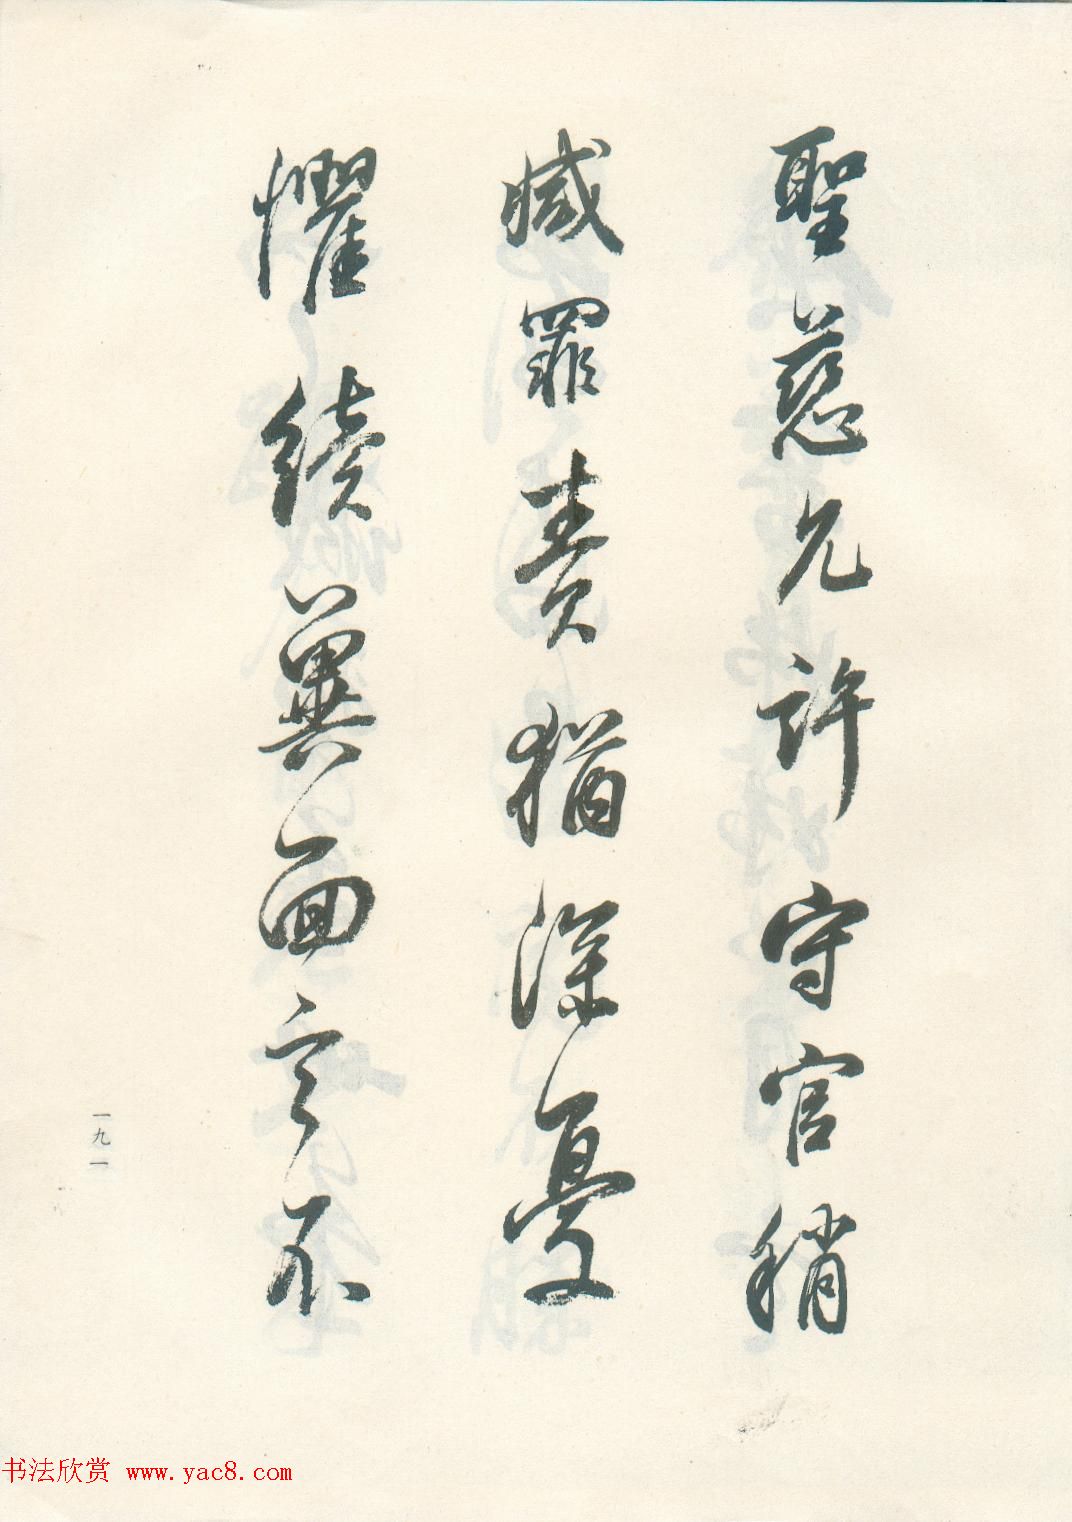 聖慈允許守官稍
減罪責猶深憂
懼續冀面言不
一九一
书法欣赏 www.yac8.com